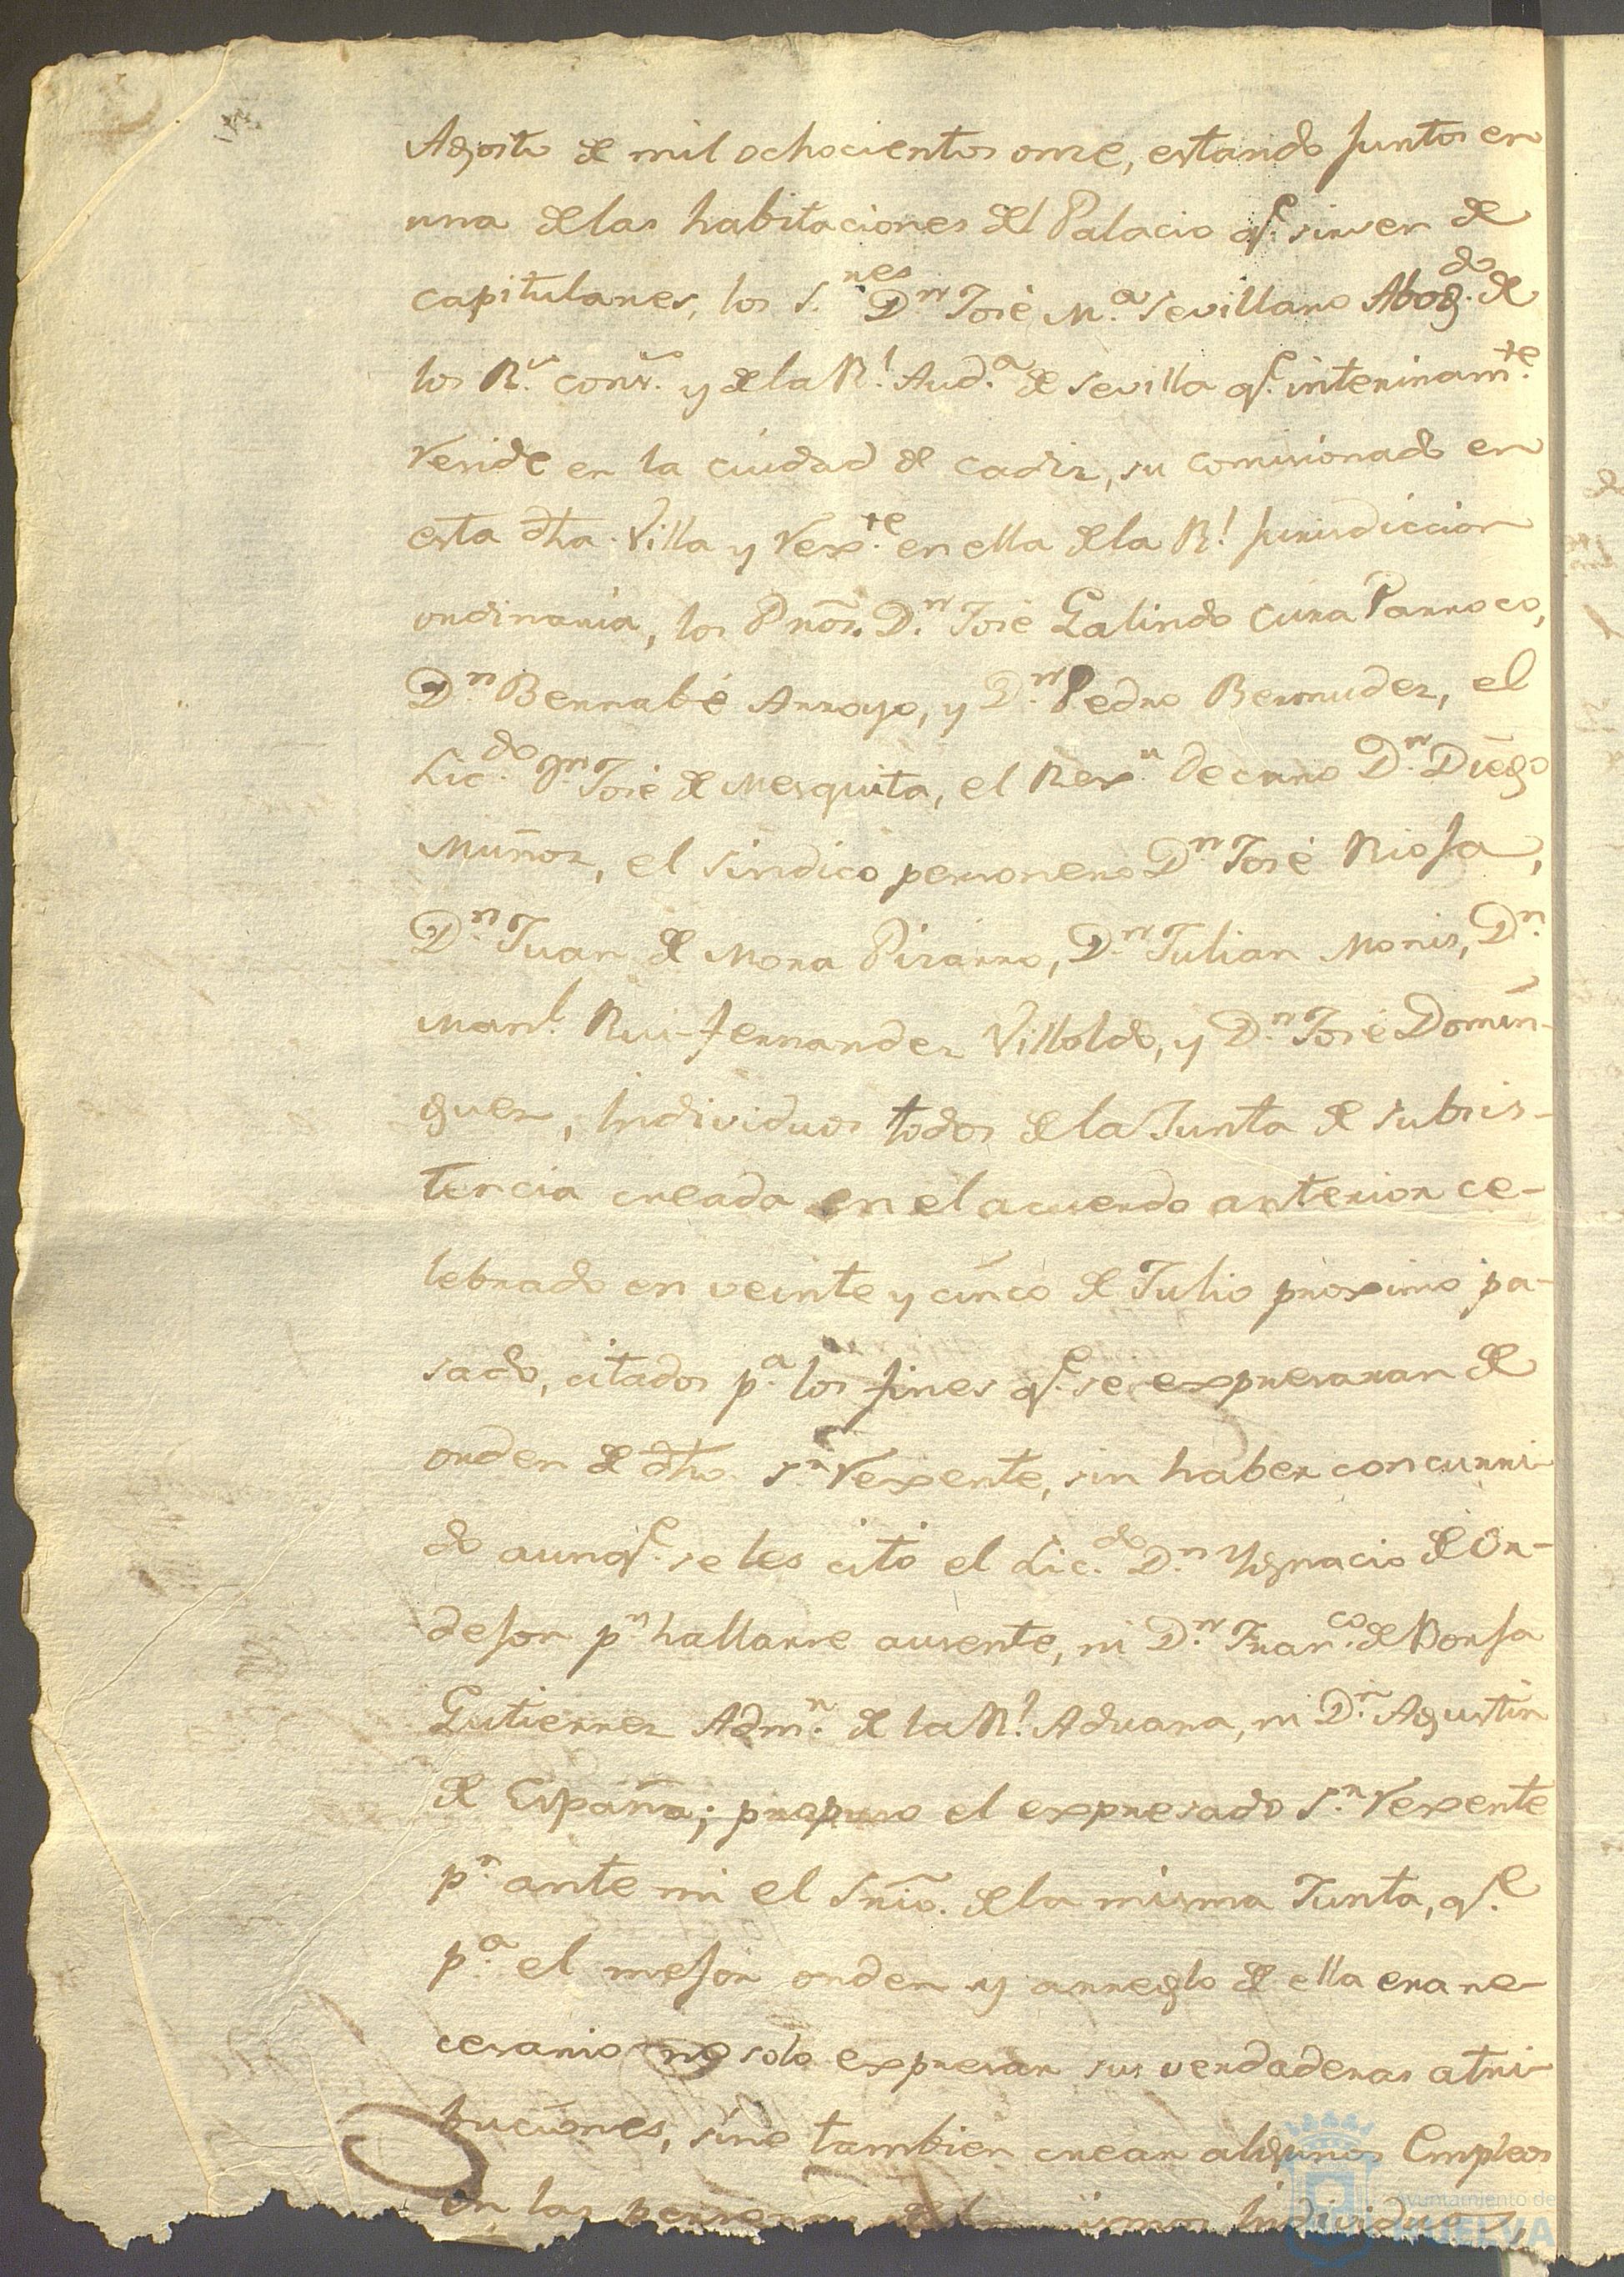 Agosto de mil ochocientos once, estando juntos en
una de las habitaciones del Palacio qe. sirven de
capitulares, los S.nes Dn. José M.a Sevillano Abog.do de
los R.s cons.s y de la R.l Aud.a de Sevilla qe. interinam.te
reside en la ciudad de Cadiz, su comisionado en
esta dha. Villa y Rex.te en ella de la R.l jurisdiccion
ordinaria, los Pños. Dn. José Galindo Cura Parroco,
Dn. Bernabé Arroyo, y Dn. Pedro Bermudez, el
Lic.do Dn. José de Mesquita, el Rex.r Decano Dn. Diego
Muñoz, el sindico personero Dn. José Rioja,
Dn. Juan de Mora Pizarro, Dn. Julian Monis, Dn.
Man.l Rui-fernandez Villoldo, y Dn. José Domin-
guez, Individuos todos de la Junta de subsis-
tencia creada en el acuerdo anterior ce-
lebrado en veinte y cinco de Julio proximo pa-
sado, citados p.a los fines qe. se expresaran de
orden de dho. S.r Rexente, sin haber concurri-
do aunqe. se les citó el Lic.do Dn. Ygnacio de Or-
dejon p.r hallarse ausente, ni Dn. Fran.co de Borja
Gutierrez Adm.r de la R.l Aduana, ni Dn. Agustin
de España; propuso el expresado S.r Rexente
p.r ante mi el Srio. de la misma Junta, qe.
p.a el mejor orden y arreglo de ella era ne-
cesario no solo expresar sus verdaderas atri-
buciones, sino tambien crear algunos Empleos
en las personas de los mismos Individuos,
Ayuntamiento de
HUELVA